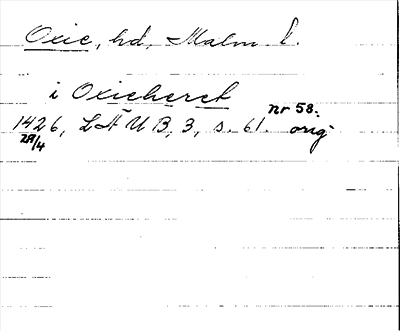 Oxie, hd, Malm l.
i Oxieheret
nr 58.
1426, LÄUB, 3, s. 61. orig
29/4